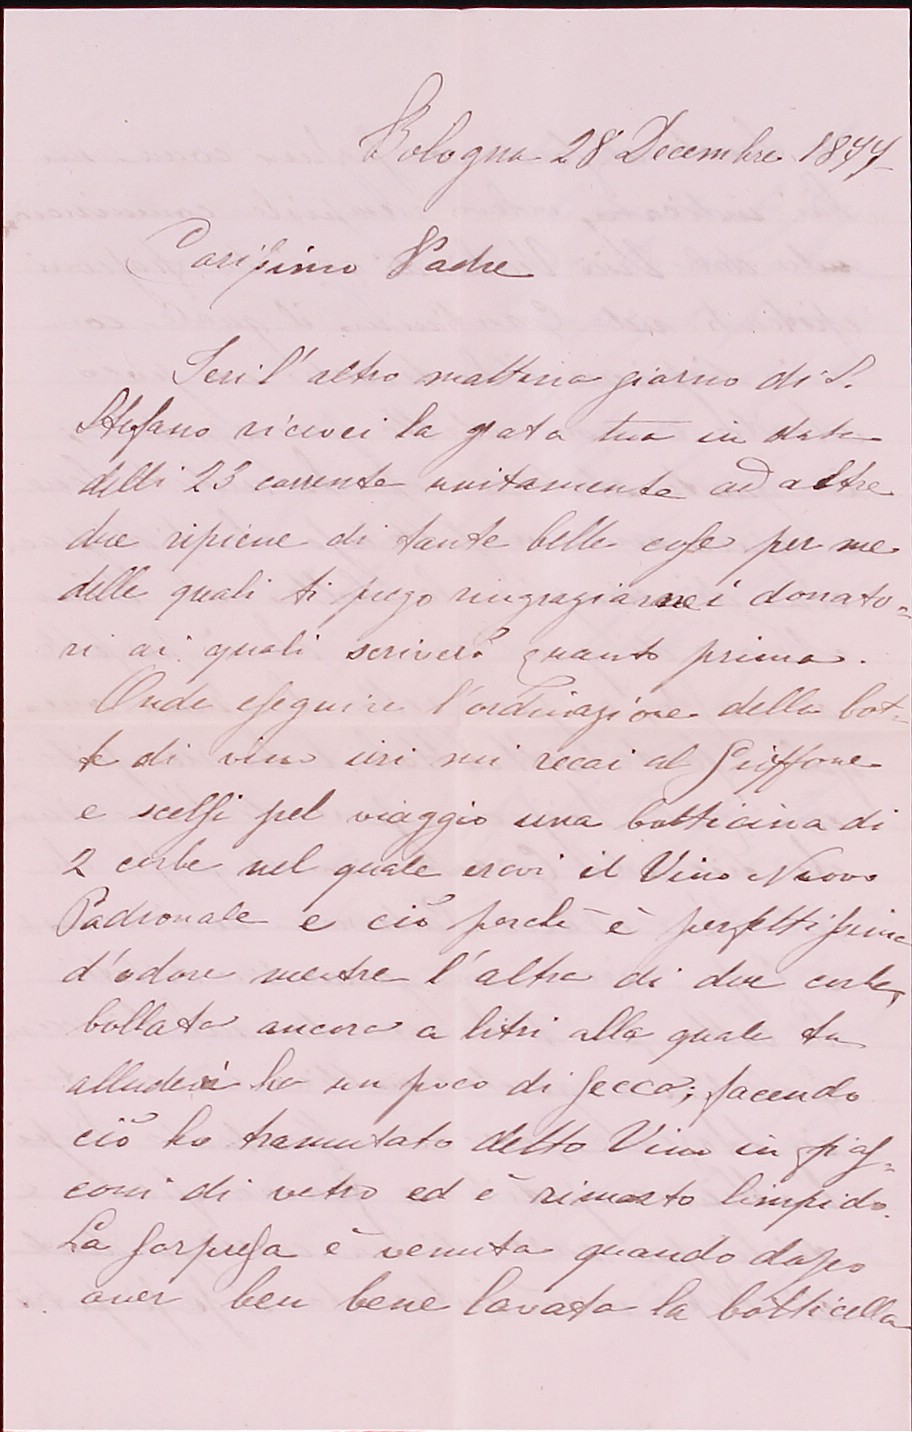 Bologna 28 Decembre 1877
Carissimo Padre
Ieri l'altro mattina giorno di S.
Stefano ricevei la grata tua in data
delli 23 corrente unitamente ad altre
due ripiene di tante belle cose per me
delle quali ti prego ringraziarne i donato=
ri ai quali scriverò quanto prima.
Onde eseguire l'ordinazione della bot=
te di vino ieri mi recai al Griffone
e scelsi pel viaggio una botticina di
2 corbe nel quale eravi il Vino Nuovo
Padronale e ciò perchè è perfettissima
d'odore mentre l'altra di due corbe,
bollata ancora a litri alla quale tu
alludevi ha un poco di secco; facendo
ciò ho tramutato detto Vino in fias=
coni di vetro ed è rimasto limpido.
La sorpresa è venuta quando dopo
aver ben bene lavata la botticella